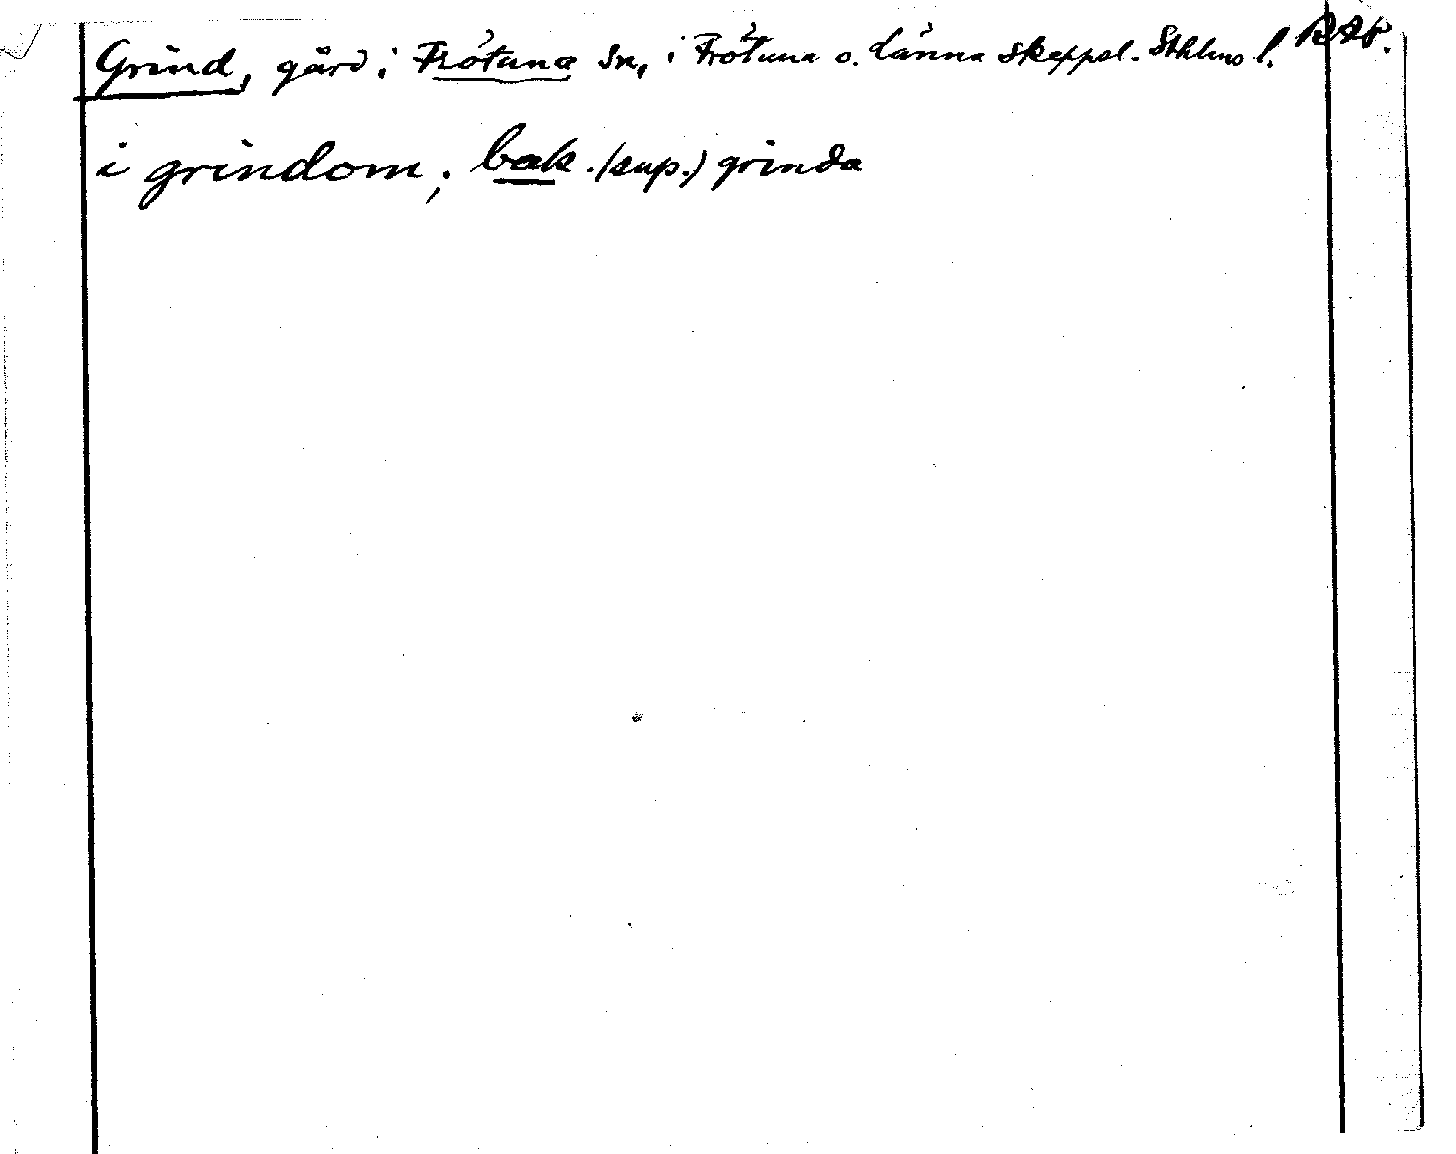 Grind, gård i Frötuna sn, i Frötuna o. Länna skeppsl. Sthlms l.
i grindom; bak. (sup.) grinda